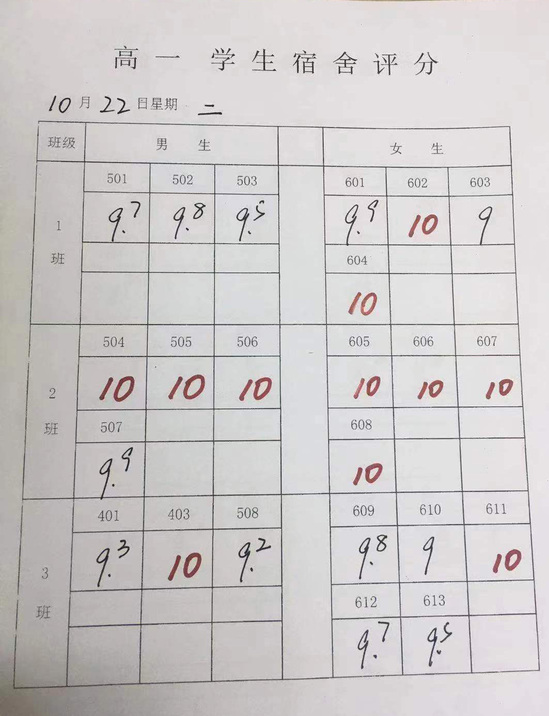 高一 学生宿舍评分
10月22日星期 二
班级 男 生 女 生
501 502 503 601 602 603
1班 9.7 9.8 9.5 9.9 10 9
604
10
504 505 506 605 606 607
2班 10 10 10 10 10 10
507 608
9.9 10
401 403 508 609 610 611
3班 9.3 10 9.2 9.8 9 10
612 613
9.7 9.5